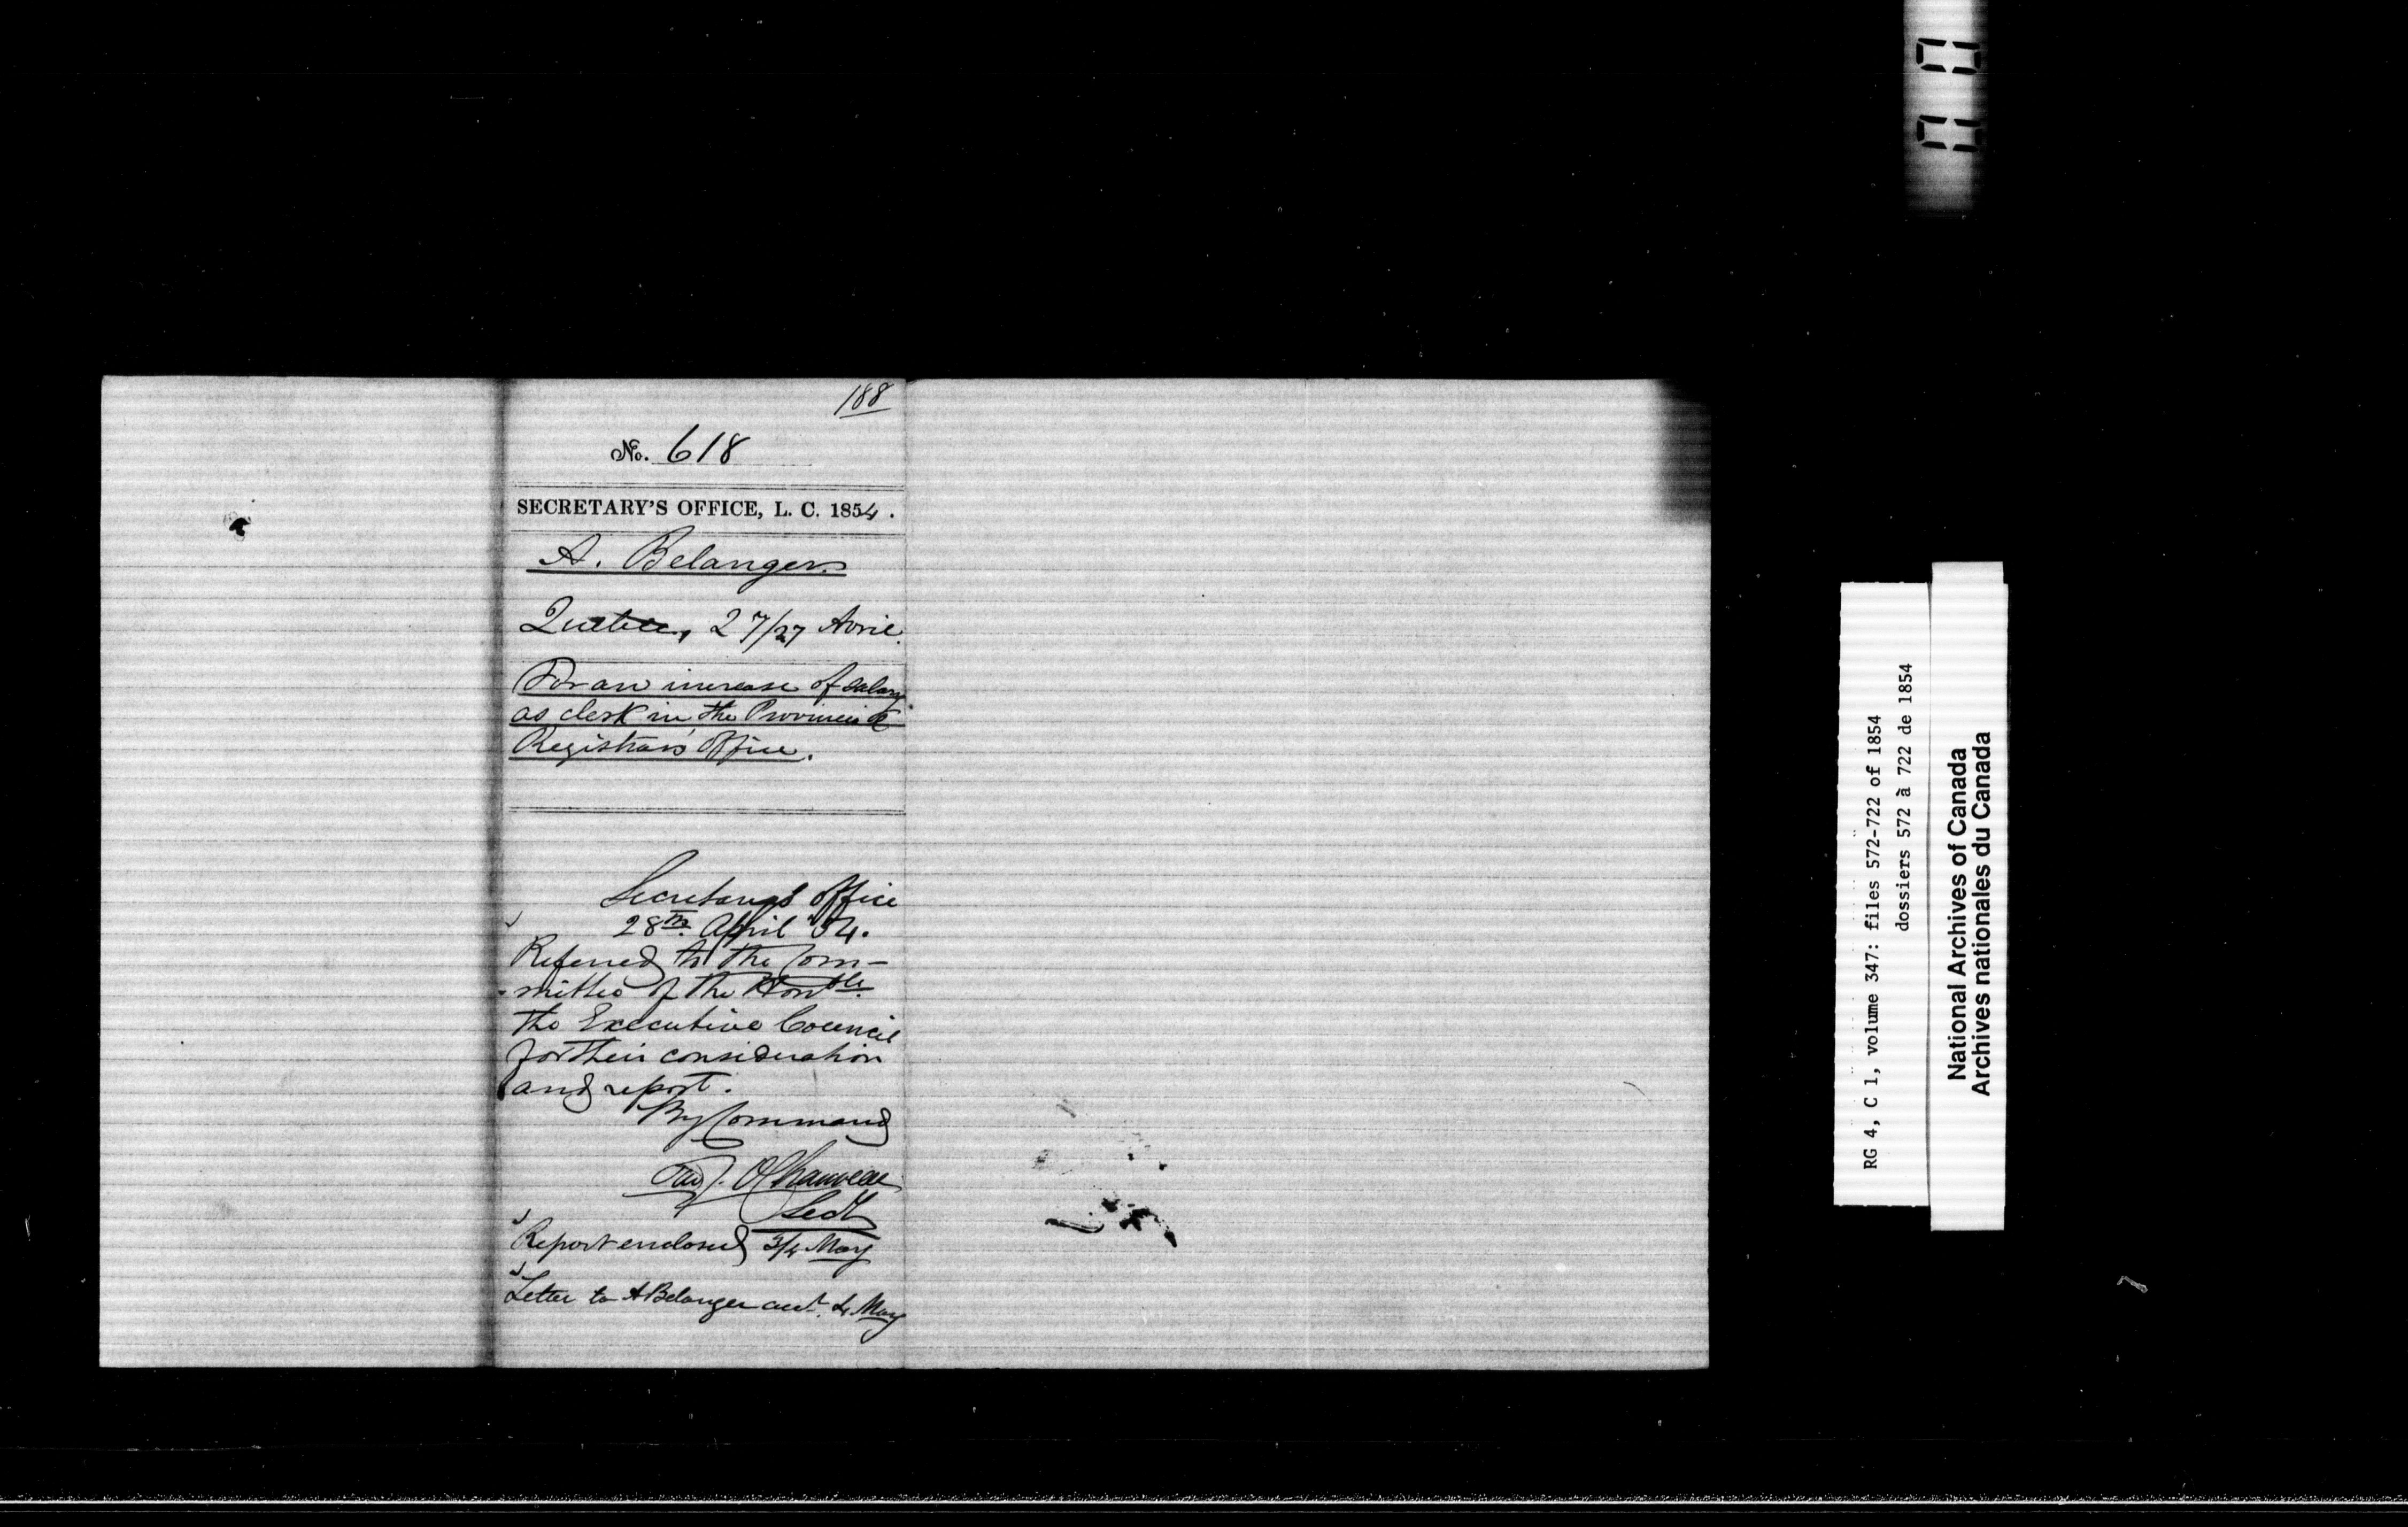 188
No. 618
SECRETARY'S OFFICE, L. C. 1854.
A. Belanger
Quebec, 27/27 Avril.
For an increase of salary
as clerk in the Provincial
Registrar's Office.
Secretary's Office
28th April '54.
Referred to the Com-
-mittee of the Honble
the Executive Council
for their consideration
and report.
By Command
P. J. O Chauveau
Secy
Report enclosed 3/4 May
Letter to A Belanger 4 May
RG 4, C 1, volume 347: files 572-722 of 1854
dossiers 572 à 722 de 1854
National Archives of Canada
Archives nationales du Canada